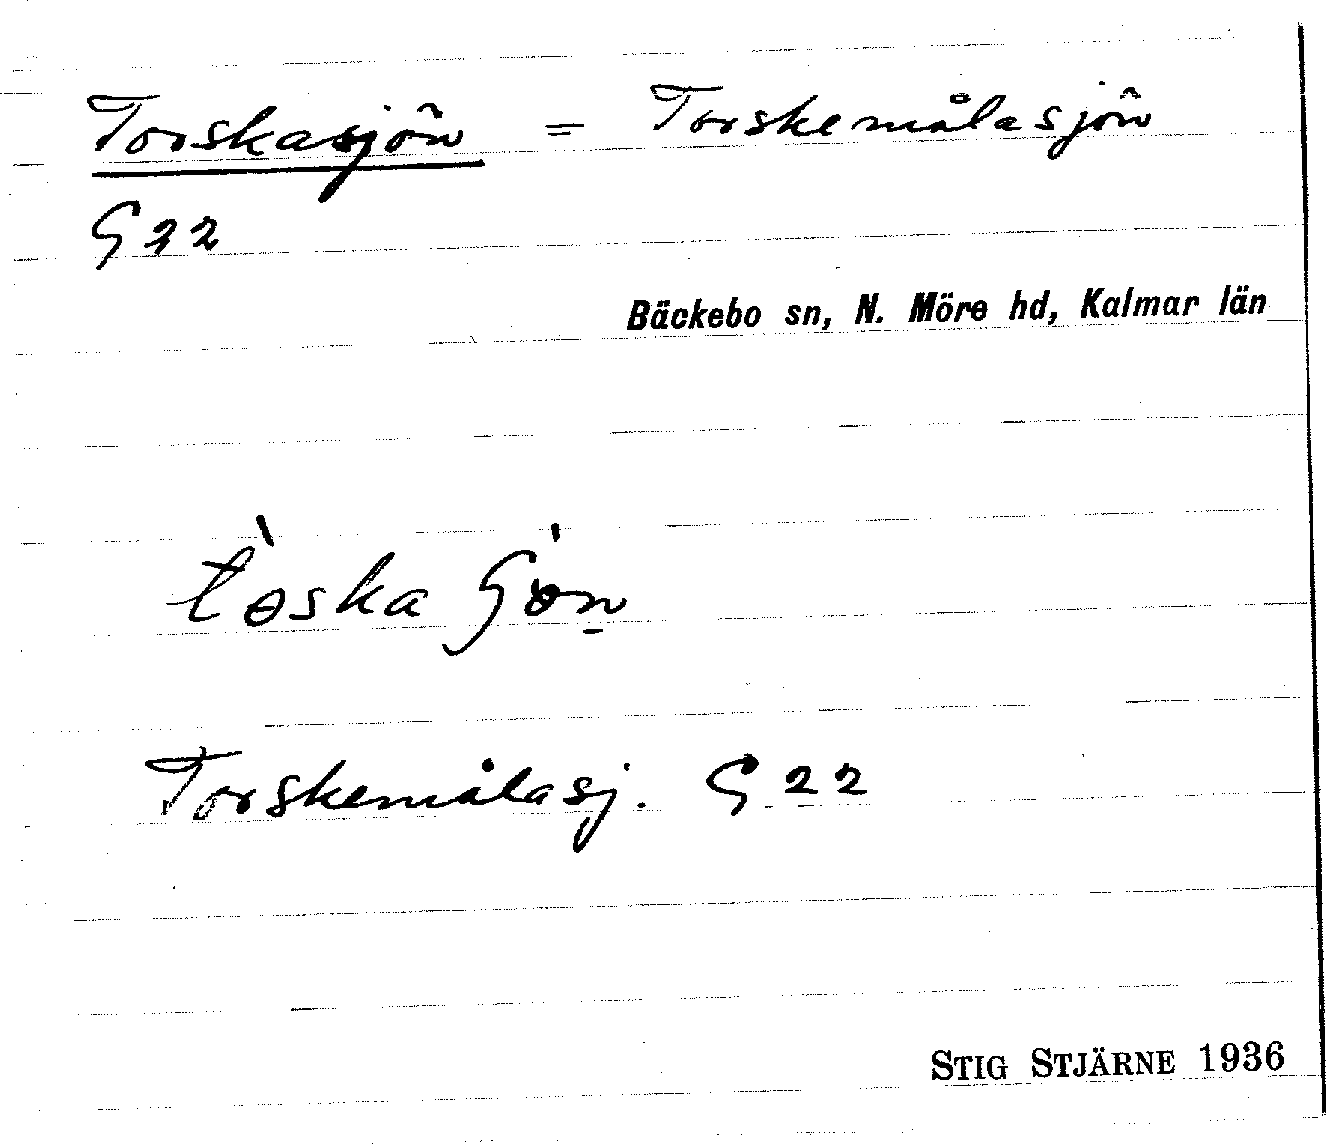 Torskasjön = Torskemålasjön
G 22
Bäckebo sn, N. Möre hd, Kalmar län
tòska ʃön
Torskemålasj. G 22
STIG STJÄRNE 1936